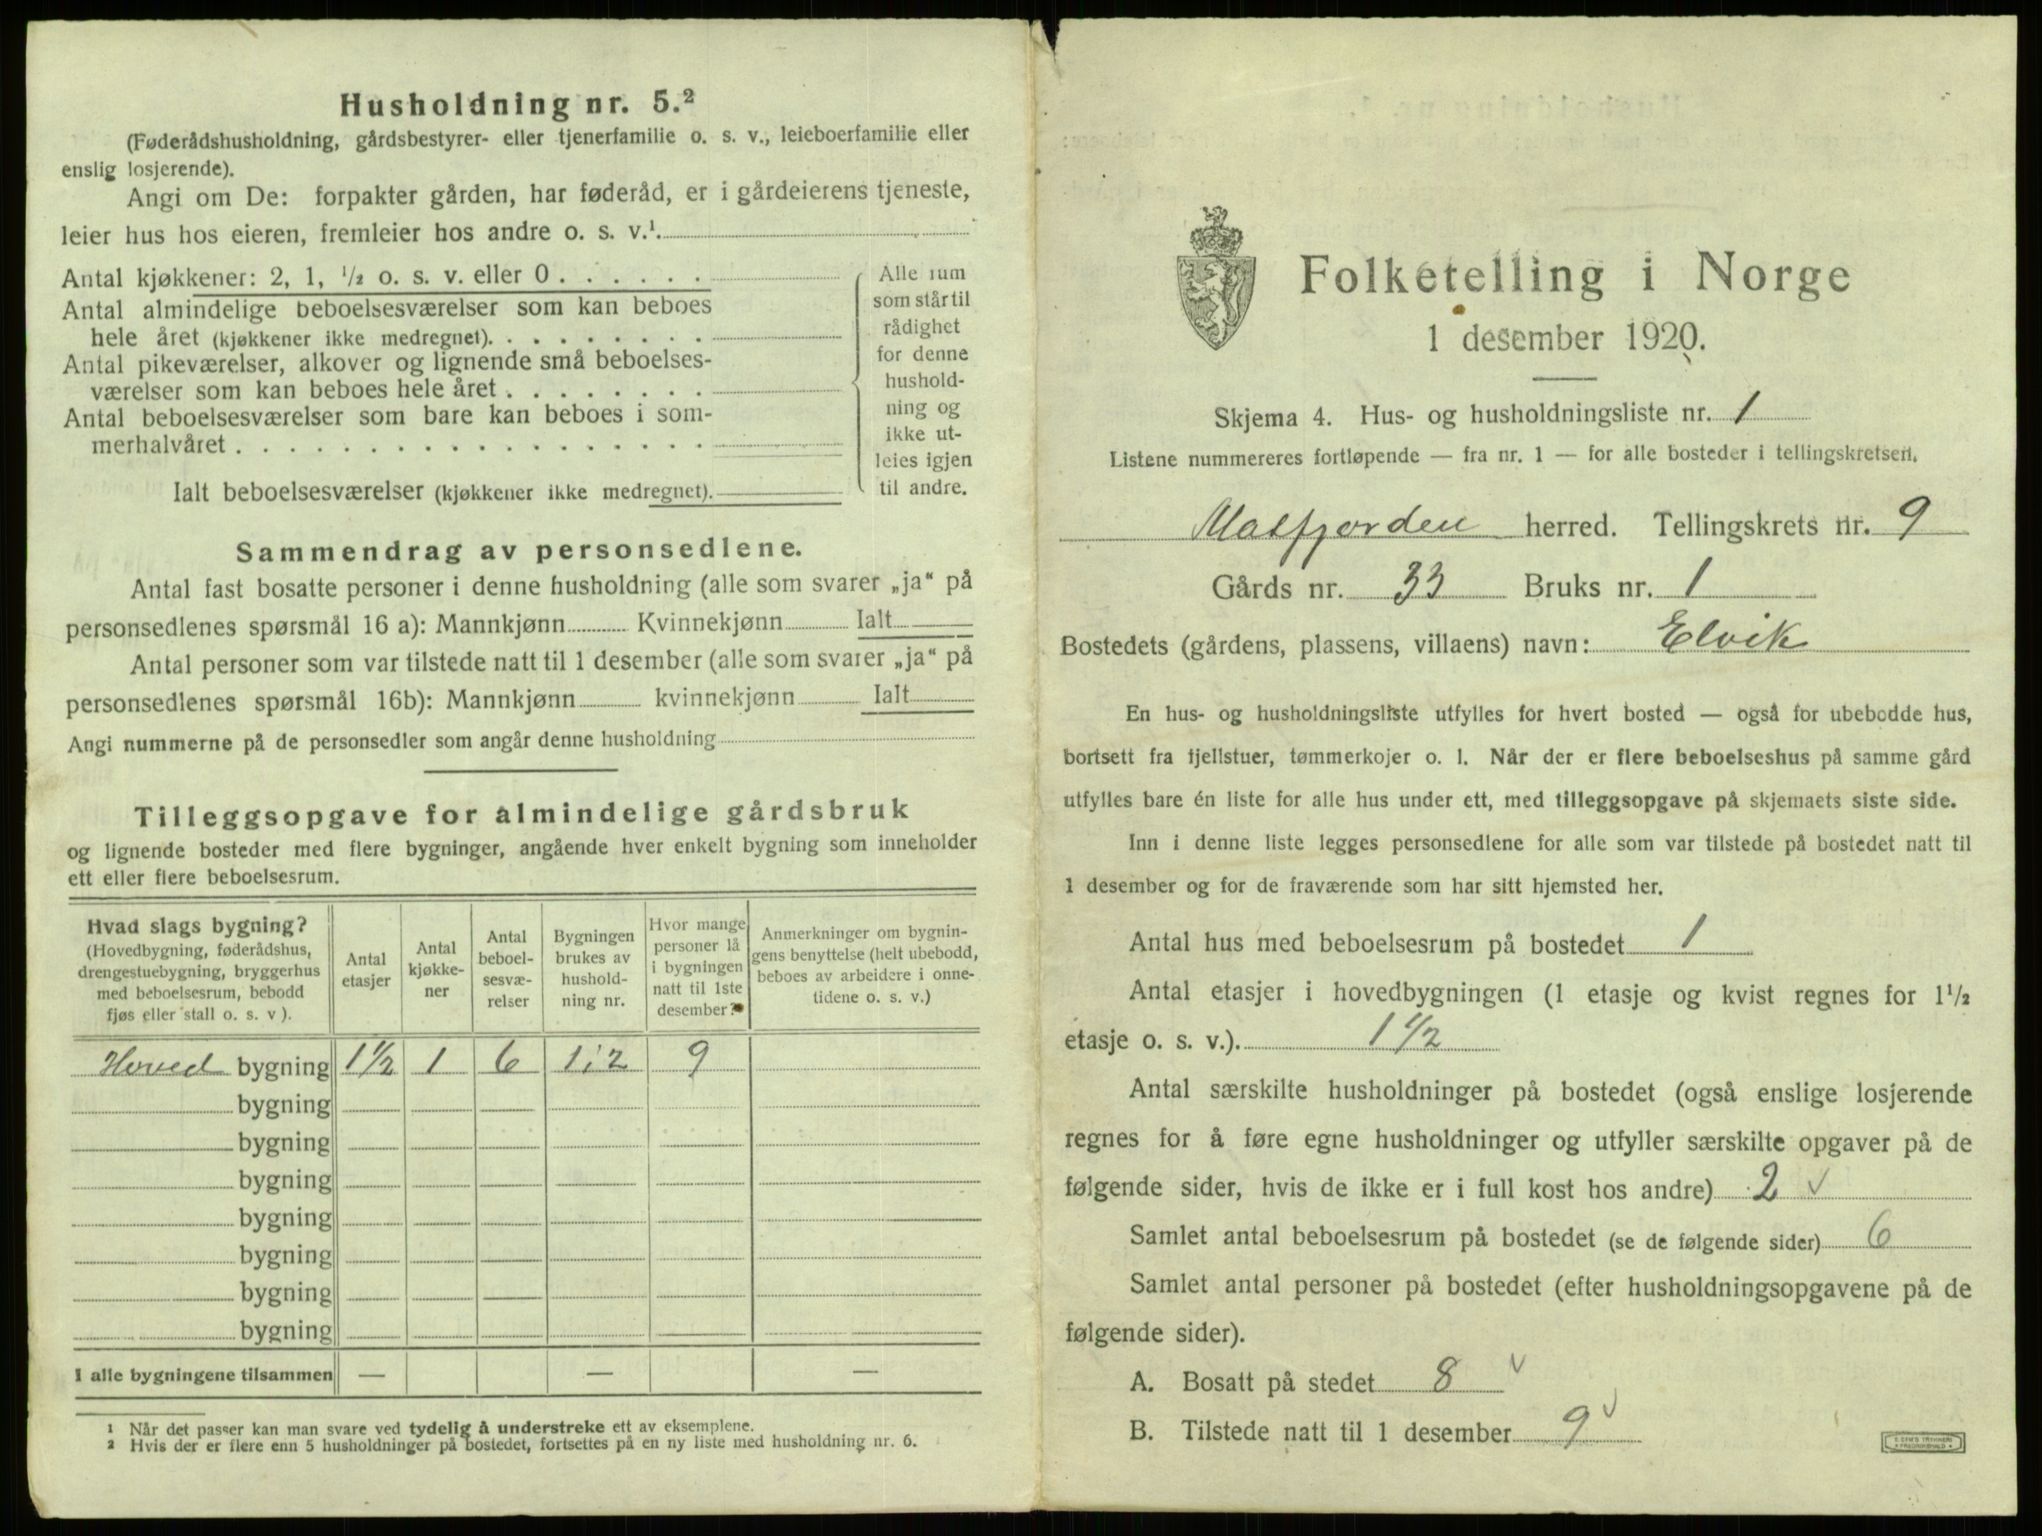 Husholdning nr. 5.²
(Føderådshusholdning, gårdsbestyrer- eller tjenerfamilie o. s. v., leieboerfamilie eller
enslig losjerende).
Angi om De: forpakter gården, har føderåd, er i gårdeierens tjeneste,
leier hus hos eieren, fremleier hos andre o. s. v.¹
Antal kjøkkener: 2, 1, ½ o. s. v. eller 0 . . . . . .
Antal almindelige beboelsesværelser som kan beboes
hele året (kjøkkener ikke medregnet). . . . . . . . .
Antal pikeværelser, alkover og lignende små beboelses-
værelser som kan beboes hele året . . . . . . . .
Antal beboelsesværelser som bare kan beboes i som-
merhalvåret . . . . . . . . . . . . . . . . . .
Ialt beboelsesværelser (kjøkkener ikke medregnet).
Alle rum
som står til
rådighet
for denne
hushold-
ning og
ikke ut-
leies igjen
til andre.
Sammendrag av personsedlene.
Antal fast bosatte personer i denne husholdning (alle som svarer „ja“ på
personsedlenes spørsmål 16 a): Mannkjønn Kvinnekjønn Ialt
Antal personer som var tilstede natt til 1 desember (alle som svarer „ja“ på
personsedlenes spørsmål 16b): Mannkjønn kvinnekjønn Ialt
Angi nummerne på de personsedler som angår denne husholdning
Tilleggsopgave for almindelige gårdsbruk
og lignende bosteder med flere bygninger, angående hver enkelt bygning som inneholder
ett eller flere beboelsesrum.
Hvad slags bygning?
(Hovedbygning, føderådshus,
drengestuebygning, bryggerhus
med beboelsesrum, bebodd
fjøs eller stall o. s. v ).
Antal
etasjer
Antal
kjøkke-
ner
Antal
beboel-
sesvæ-
relser
Bygningen
brukes av
hushold-
ning nr.
Hvor mange
personer lå
i bygningen
natt til 1ste
desember?
Anmerkninger om bygnin-
gens benyttelse (helt ubebodd,
beboes av arbeidere i onne-
tidene o. s. v.)
Hoved bygning 1½ 1 6 1;2 9
bygning
bygning
bygning
bygning
bygning
bygning
bygning
I alle bygningene tilsammen — — —
¹ Når det passer kan man svare ved tydelig å understreke ett av eksemplene.
² Hvis der er flere enn 5 husholdninger på bostedet, fortsettes på en ny liste med husholdning nr. 6.
Folketelling i Norge
1 desember 1920.
Skjema 4. Hus- og husholdningsliste nr. 1
Listene nummereres fortløpende — fra nr. 1 — for alle bosteder i tellingskretsen.
Masfjorden herred. Tellingskrets nr. 9
Gårds nr. 33 Bruks nr. 1
Bostedets (gårdens, plassens, villaens) navn: Elvik
En hus- og husholdningsliste utfylles for hvert bosted — også for ubebodde hus,
bortsett fra fjellstuer, tømmerkojer o. l. Når der er flere beboelseshus på samme gård
utfylles bare én liste for alle hus under ett, med tilleggsopgave på skjemaets siste side.
Inn i denne liste legges personsedlene for alle som var tilstede på bostedet natt til
1 desember og for de fraværende som har sitt hjemsted her.
Antal hus med beboelsesrum på bostedet 1
Antal etasjer i hovedbygningen (1 etasje og kvist regnes for 1½
etasje o. s. v.). 1½
Antal særskilte husholdninger på bostedet (også enslige losjerende
regnes for å føre egne husholdninger og utfyller særskilte opgaver på de
følgende sider, hvis de ikke er i full kost hos andre) 2 ✓
Samlet antal beboelsesrum på bostedet (se de følgende sider) 6
Samlet antal personer på bostedet (efter husholdningsopgavene på de
følgende sider).
A. Bosatt på stedet 8 ✓
B. Tilstede natt til 1 desember 9 ✓